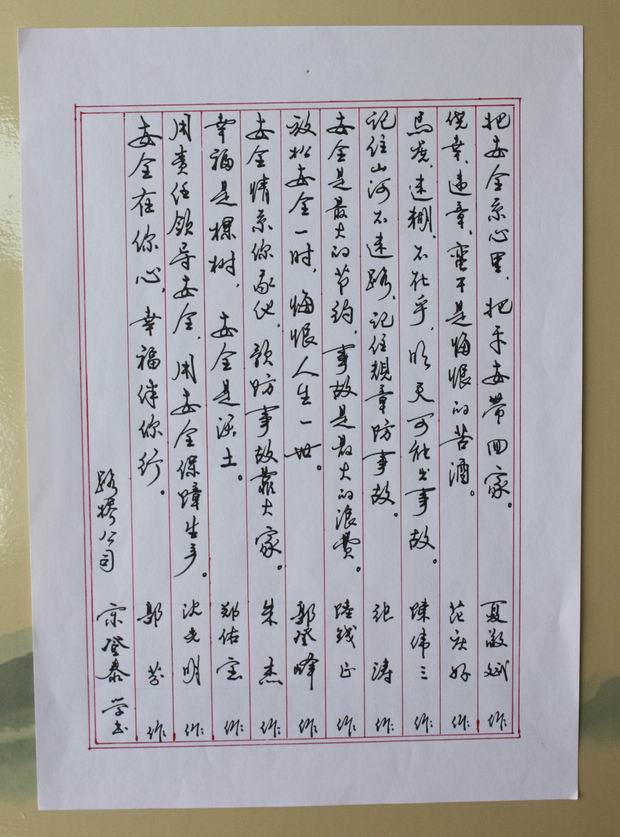 把安全系心里,把平安带回家。 夏敬斌 作
侥幸、违章、蛮干是悔恨的苦酒。 范庆好 作
马虎、违规、不在乎,明天可能出事故。 陳伟三 作
记住山河不迷路、记住规章防事故。 张涛 作
安全是最大的节约,事故是最大的浪费。 陆钱正 作
放松安全一时,悔恨人生一世。 郭登峰 作
安全情系你我他、预防事故靠大家。 朱杰 作
幸福是棵树,安全是沃土。 郑佑宝 作
用责任领导安全,用安全保障生产。 沈光明 作
安全在你心,幸福伴你行。 郭芬 作
路桥公司 宗登泰 学书